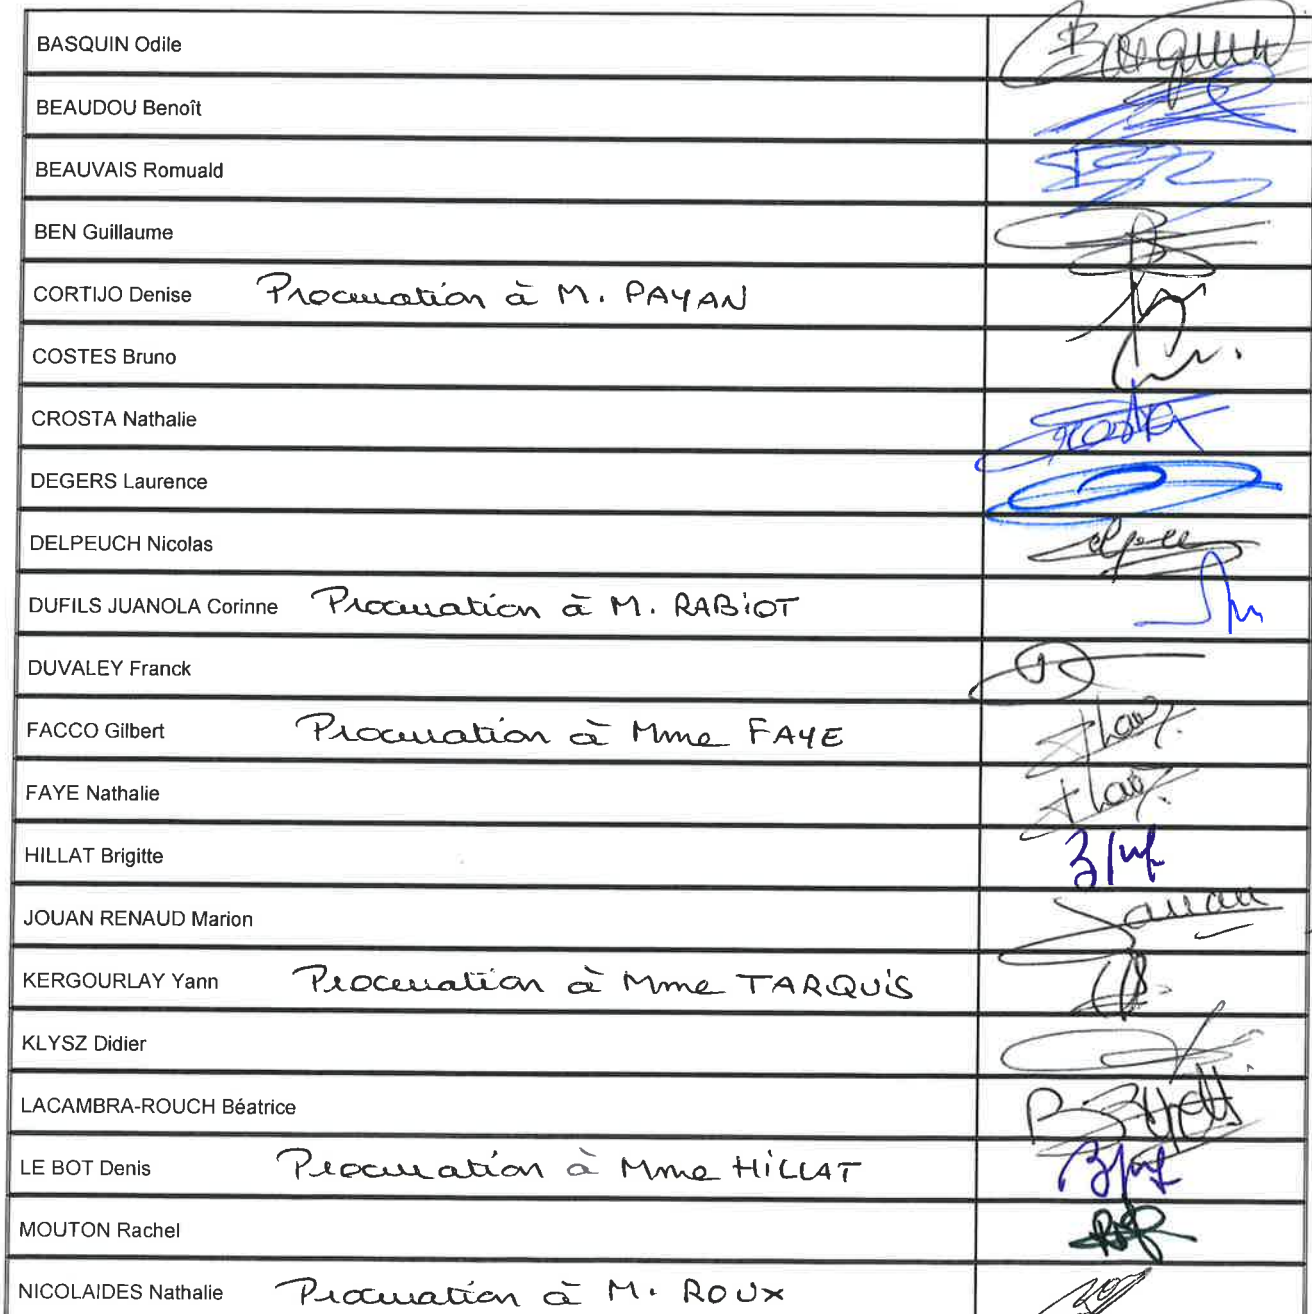 BASQUIN Odile
BEAUDOU Benoît
BEAUVAIS Romuald
BEN Guillaume
CORTIJO Denise Procuration à M. PAYAN
COSTES Bruno
CROSTA Nathalie
DEGERS Laurence
DELPEUCH Nicolas
DUFILS JUANOLA Corinne Procuration à M. RABIOT
DUVALEY Franck
FACCO Gilbert Procuration à Mme FAYE
FAYE Nathalie
HILLAT Brigitte
JOUAN RENAUD Marion
KERGOURLAY Yann Procuration à Mme TARQUIS
KLYSZ Didier
LACAMBRA-ROUCH Béatrice
LE BOT Denis Procuration à Mme HILLAT
MOUTON Rachel
NICOLAIDES Nathalie Procuration à M. ROUX